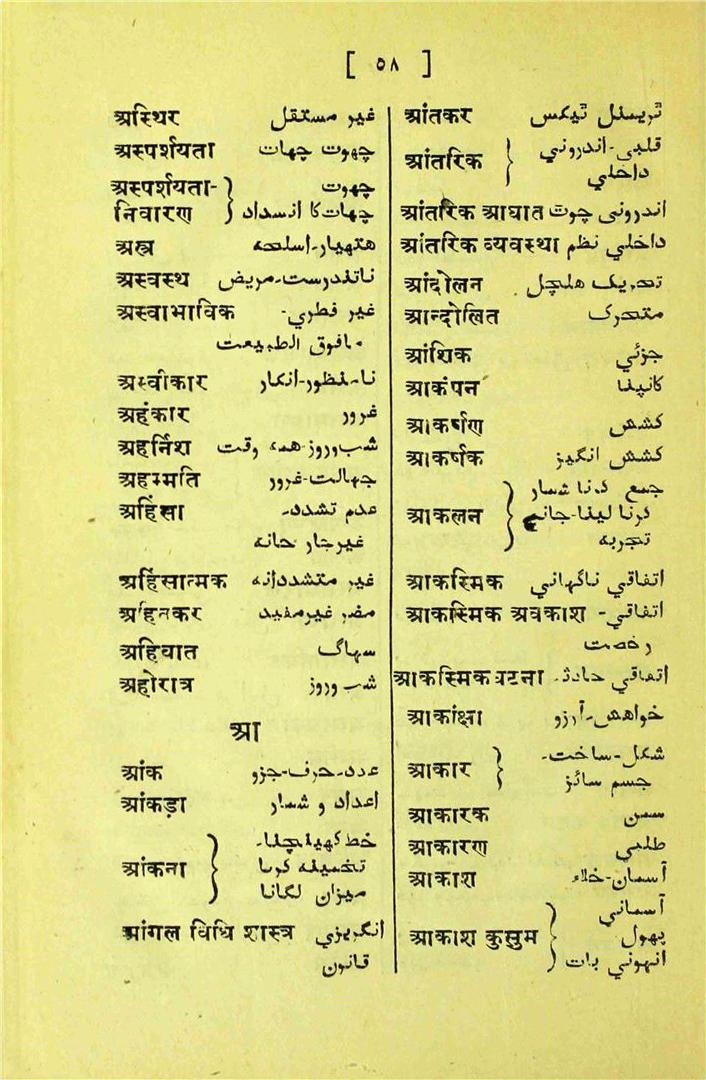 [ ۵۸ ]
अस्थिर غیر مستقل
अस्पर्शयता چھوت چھات
अस्पर्शयता- چھوت
निवारण چھات کا انسداد
अस्त्र ھتھیار-اسلحہ
अस्वस्थ ناتندرست-مریض
अस्वाभाविक غیر فطري-
مافوق الطبیعت
अस्वीकार نا-منظور-انکار
अहंकार غرور
अहर्निश شب وروز-ھمہ وقت
अहम्मति جہالت-غرور
अहिंसा عدم تشدد-
غیرجار حانہ
अहिंसात्मक غیر متشددانہ
अहितकर مضر غیرمفید
अहिवात سہاگ
अहोरात्र شب وروز
आ
आंक عدد-حرف-جزو
आंकड़ा اعداد و شمار
خط کھینچنا-
आंकना تخمینہ کرنا
میزان لگانا
आंगल विधि शास्त्र انگریزي
قانون
आंतकर ٹرمینل ٹیکس
قلبی-اندروني
आंतरिक داخلي
आंतरिक आघात اندرونی چوٹ
आंतरिक व्यवस्था داخلي نظم
आंदोलन تحریک ھلچل
आन्दोलित متحرک
आंशिक جزئي
आकंपन کانپنا
आकर्षण کشش
आकर्षक کشش انگیز
جمع کرنا شمار
आकलन کرنا لینا-جانچ
تجربہ
आकस्मिक اتفاقي ناگہاني
आकस्मिक अवकाश اتفاقي-
رخصت
आकस्मिक घटना اتفاقي حادثہ-
आकांक्षा خواھش-آرزو
شکل-ساخت-
आकार جسم سائز
आकारक سمن
आकारण طلبي
आकाश آسمان-خلاء
آسماني
आकाश कुसुम پھول
انہوني بات